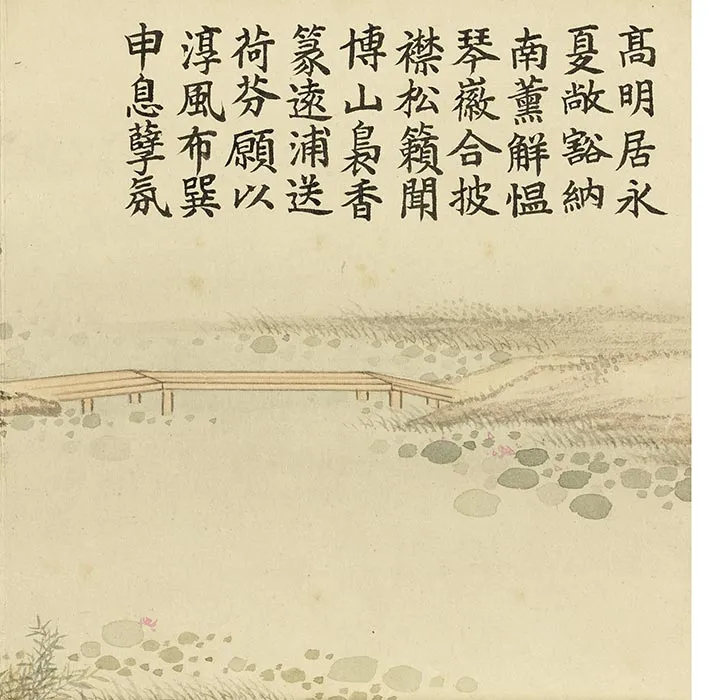 高明居永
夏敞豁納
南薰解愠
琴徽合披
襟松籟聞
博山裊香
篆遠浦送
荷芬願以
淳風布巽
申息孽氛